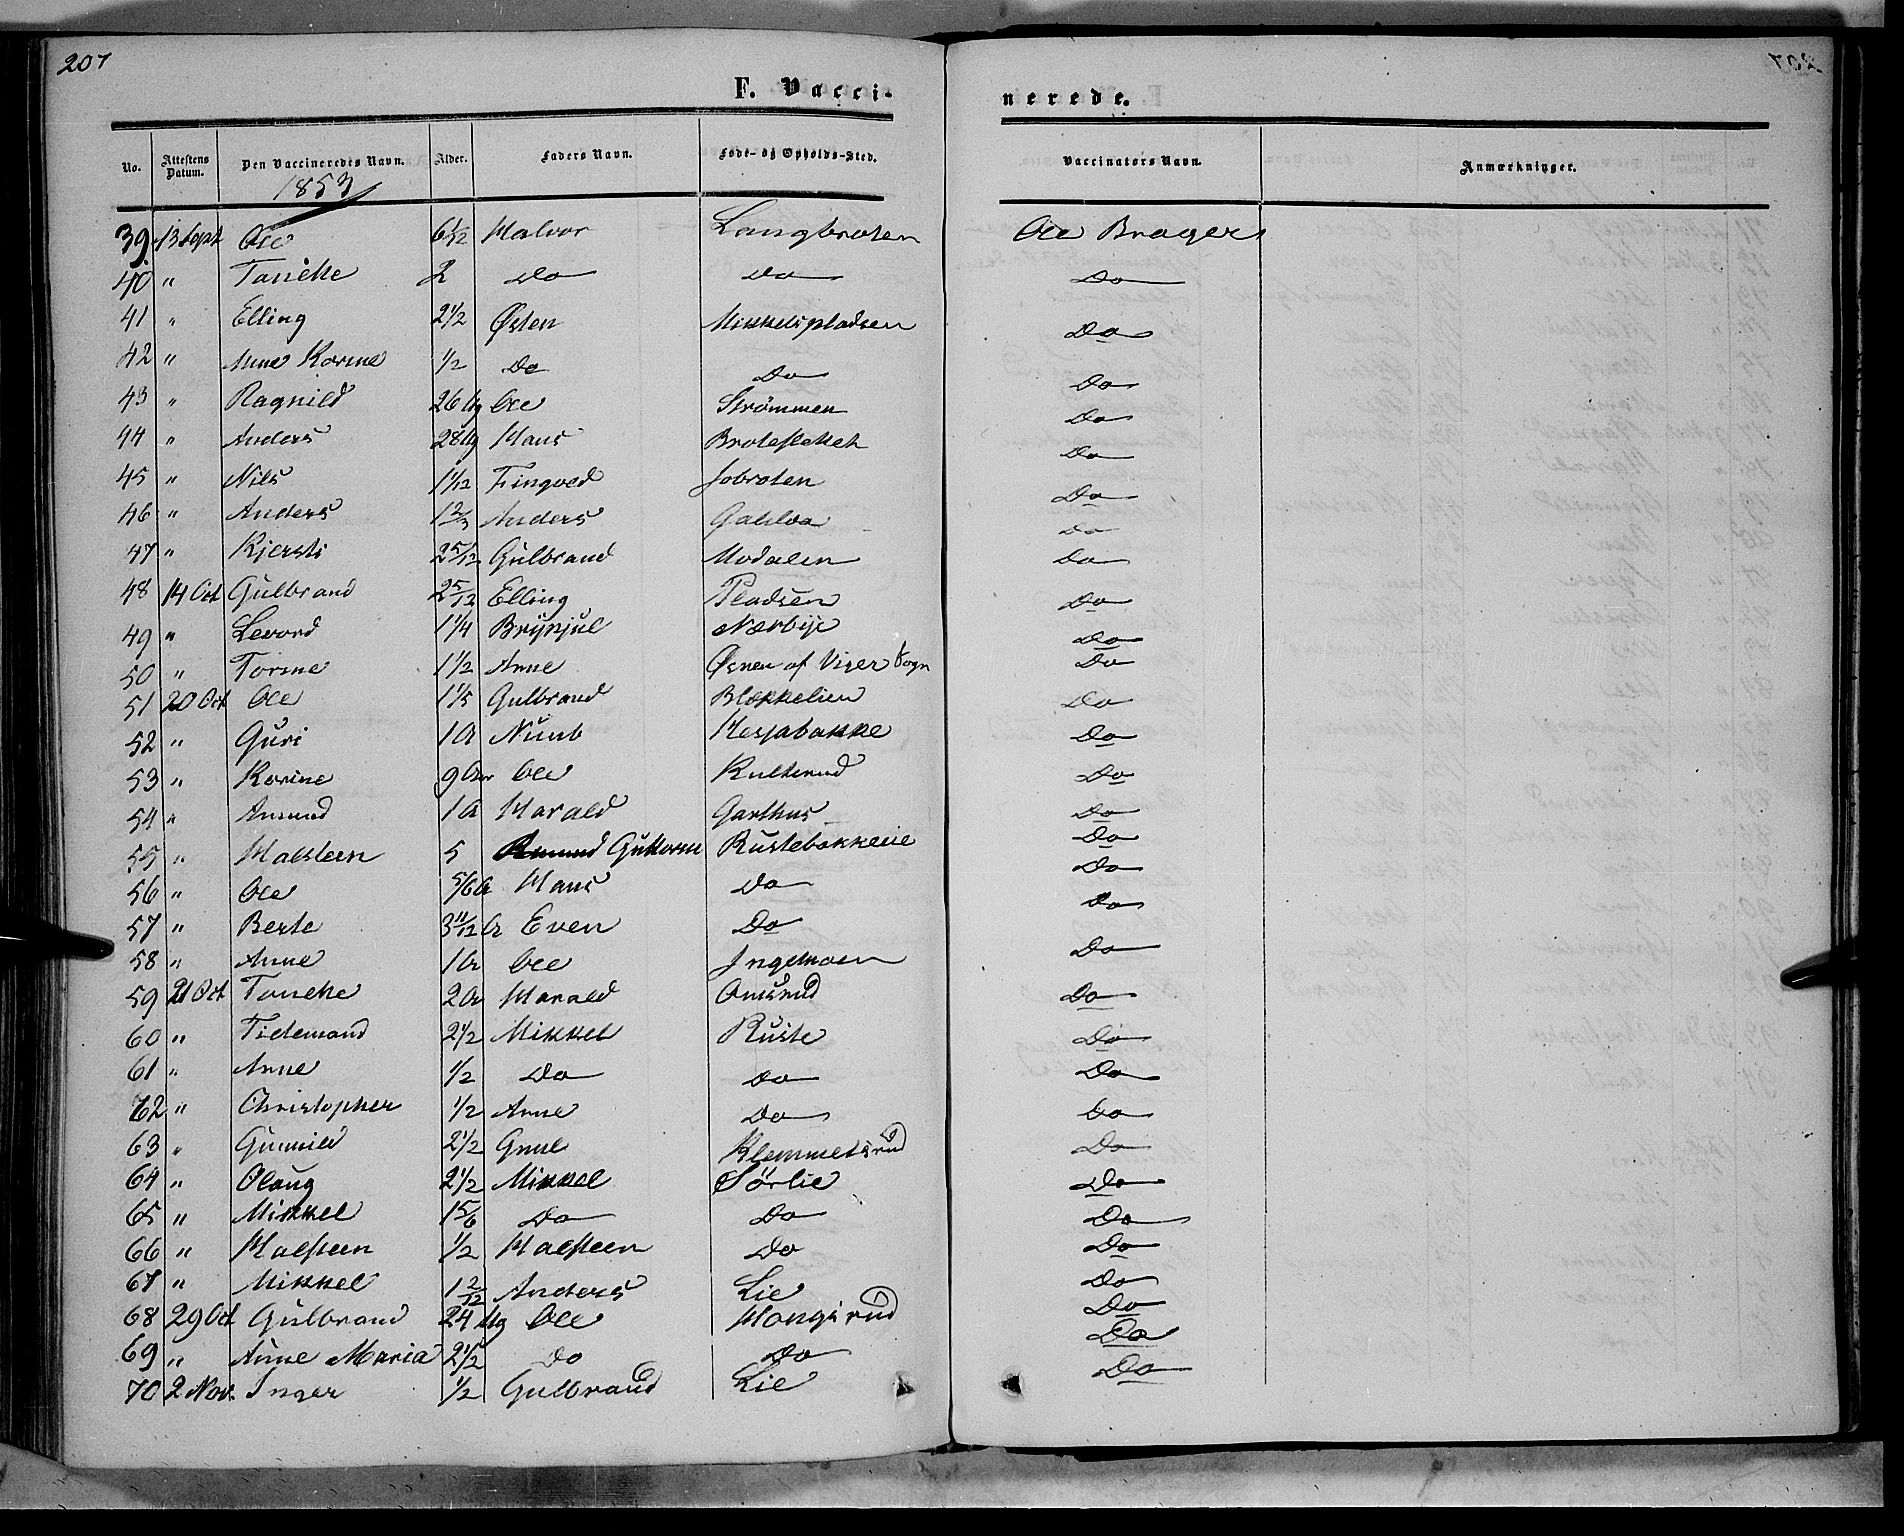 207
F. Vacci-
nerede.
No. Attestens Datum. Den Vaccineredes Navn. Alder. Faders Navn. Føde- og Opholds-Sted. Vaccinators Navn. Anmærkninger.
1853
39. 13 Sept Ole 6 1/2 Halvor Langbroten Ole Brager
40 " 2 Do Do Do
41 " Elling 2 1/2 Østen Mikkelspladsen Do
42 " Anne Karine 1/2 Do Do Do
43 " Ragnild 26 Ole Strømmen Do
44 " Anders 28 Hans Do
45 " Nils 1 1/12 Fingved Jobroten Do
46 " Anders 1 2/3 Anders Do
47 " Kjersti 2 5/12 Gulbrand Modalen Do
48 14 Oct Gulbrand 2 5/12 Elling Pladsen Do
49 " Levord 1 1/4 Brynjul Nærbye Do
50 " Torine 1 1/2 Anne Øsnen af Viger Sogn Do
51 20 Oct Ole 1 1/5 Gulbrand Blækkelien Do
52 " Guri 1 A Numb Hesjabakke Do
53 " Karine 9 Aar Ole Kulterud Do
54 " Amund 1 A Harald Garthus Do
55 " Halsteen 5 Guttorm Rustebakkeie Do
56 " Ole 5/6 A Hans Do Do
57 " Berte 3 11/12 A Even Do Do
58 " Anne 1 A Ole Ingelmoen Do
59 21 Oct 2 A Harald Amsrud Do
60 " Tidemand 2 1/2 Mikkel Ruste Do
61 " Anne 1/2 Do Do Do
62 " Christopher 1/2 Arne Do Do
63 " Gunnild 2 1/2 Klemmetsrud Do
64 " Olaug 2 1/2 Mikkel Sørlie Do
65 " Mikkel 1 5/6 Do Do Do
66 " Halsteen 1/2 Halsteen Do Do
67 " Mikkel 1 2/12 Anders Lie Do
68 29 Oct Gulbrand 24 Ole Hangsrud Do
69 " Anne Maria 2 1/2 Do Do Do
70 2 Nov. Inger 1/2 Gulbrand Lie Do